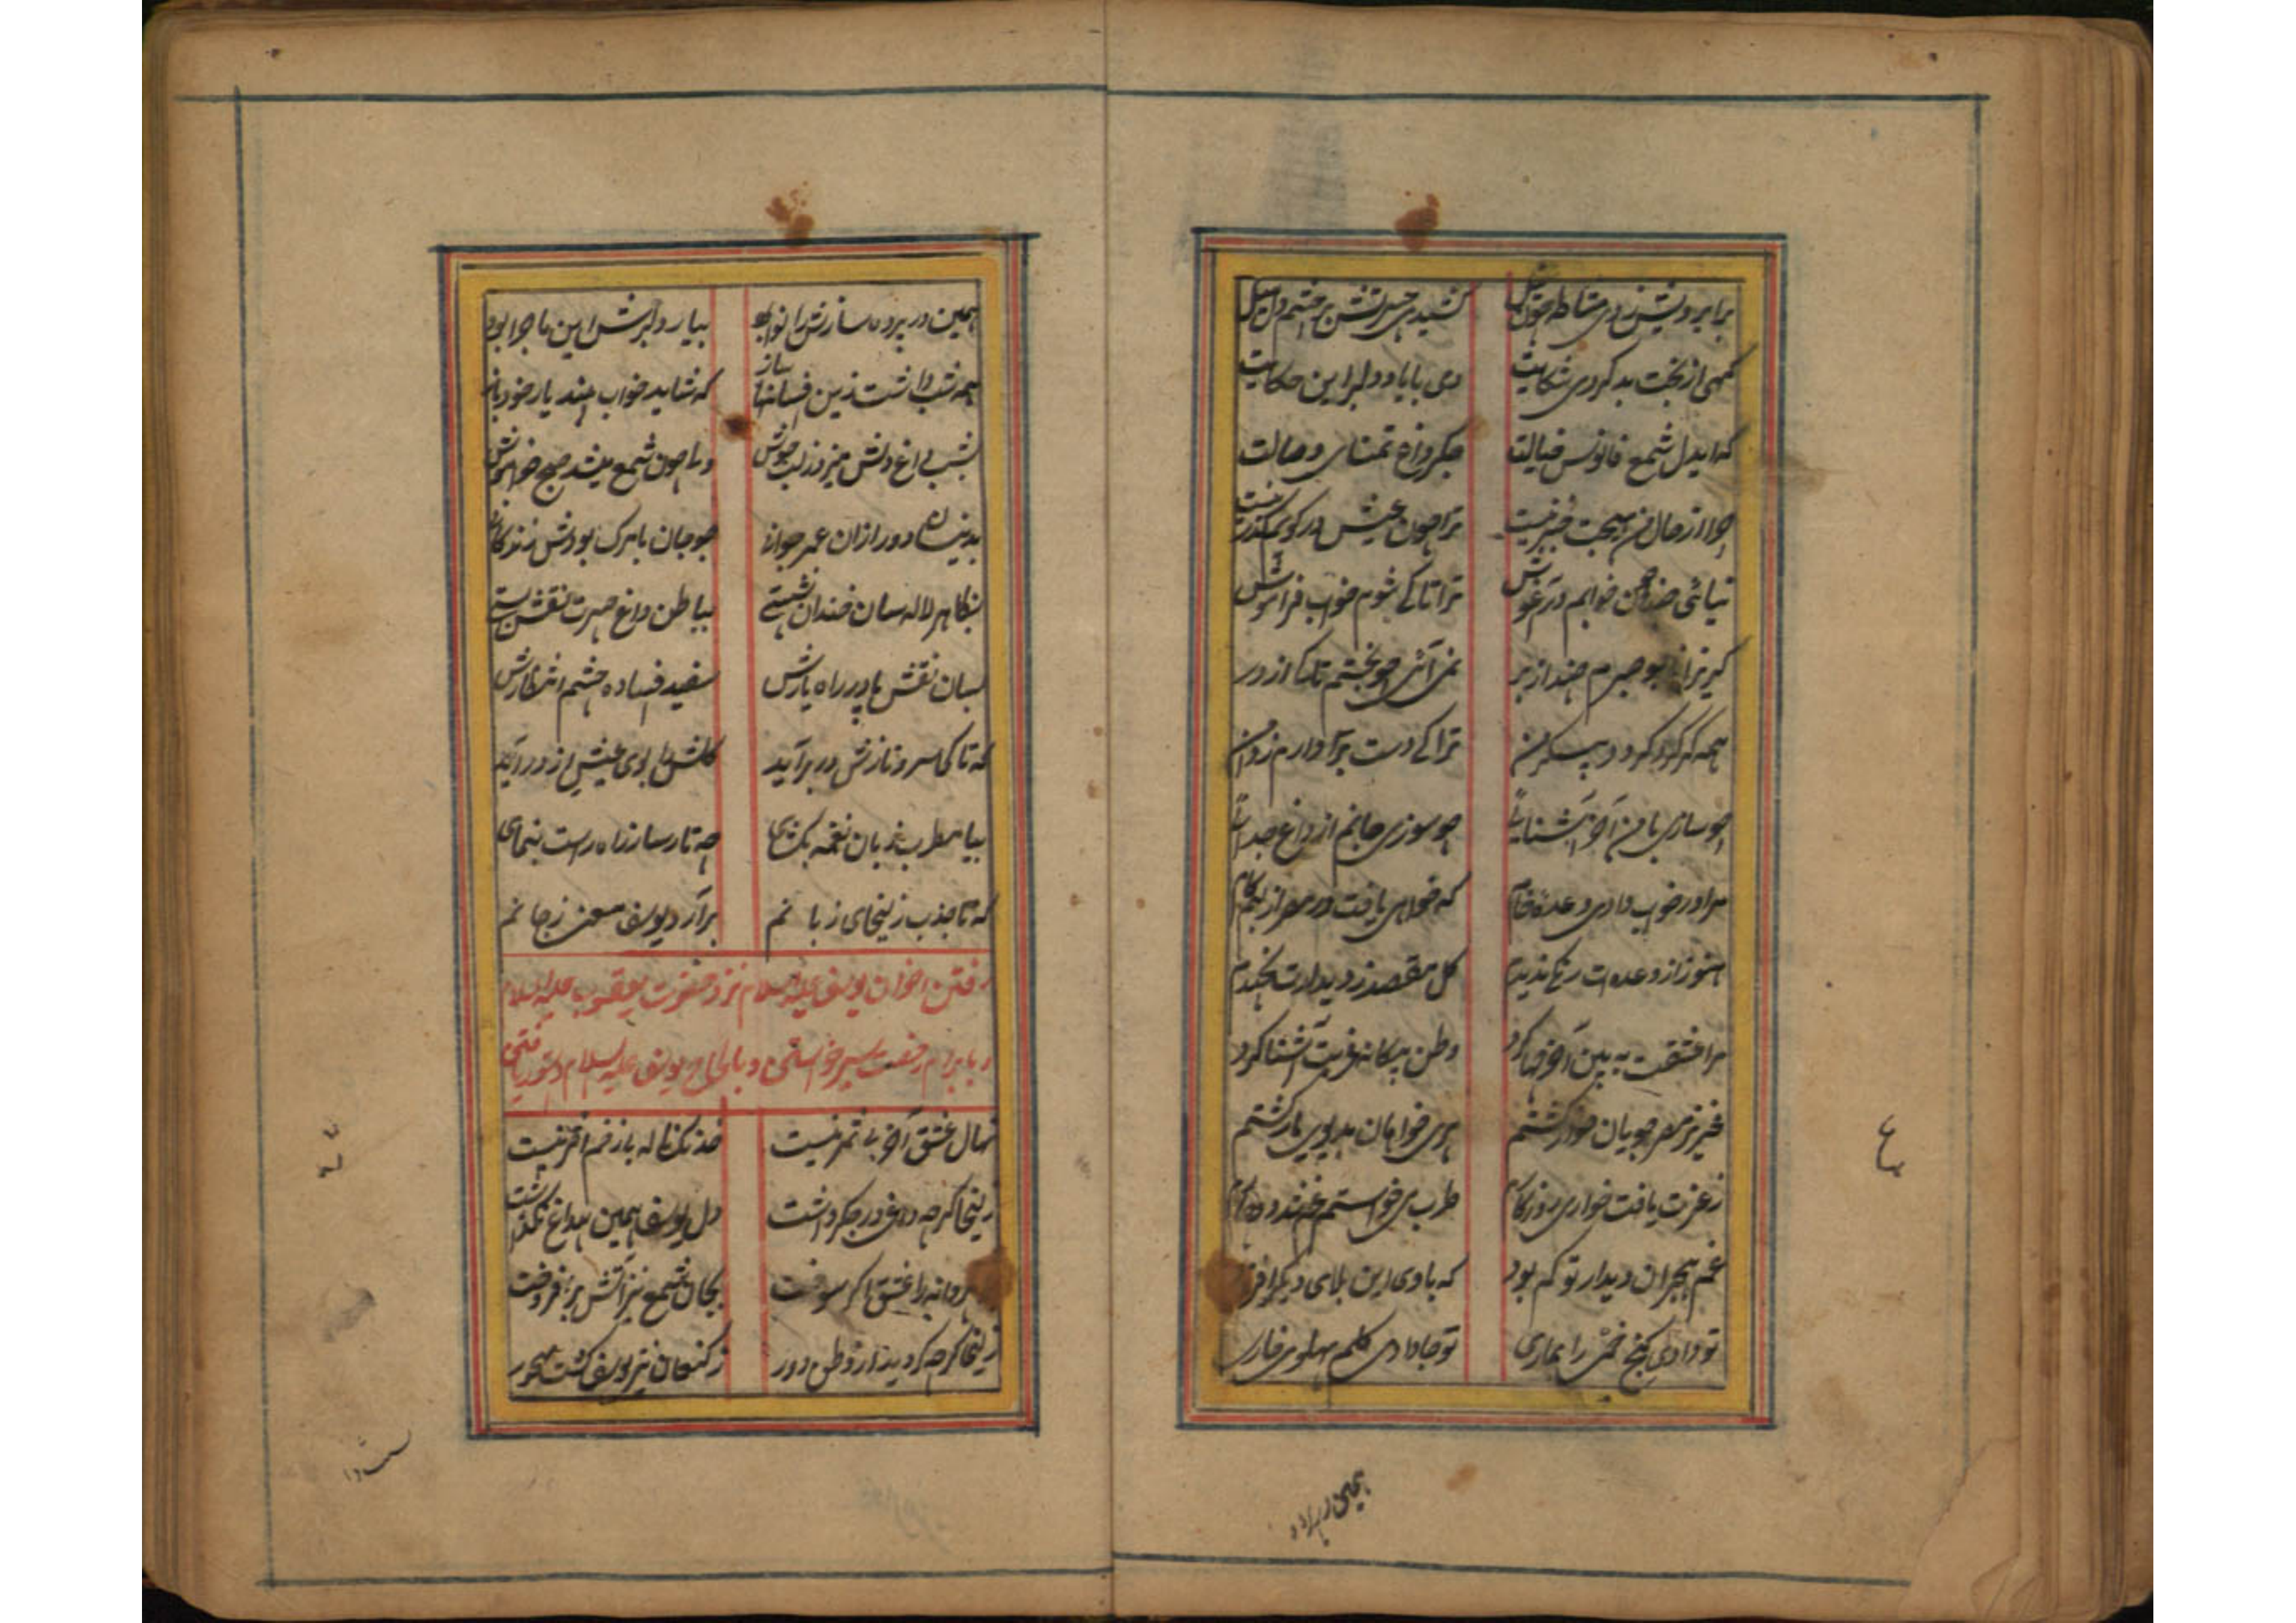 برابرویش زدی مشاطه چون نیل کشیدی حسرتش بر چشم دل میل
گهی از بخت بد کردی شکایت دی با یاد دلبر این حکایت
که ایدل شمع فانوس خیالت جگر داغ تمنای وصالت
چرا از حال من هیچت خبر نیست ترا چون عیش در کویم گذر نیست
نیائی چند چون خوابم در آغوش ترا تا کی شوم خواب فراموش
گریزانی چو صبرم چند از بر نمی آئی چو بختم تا کی از در
همه گر گرد گردد پیکر من ترا کی دست بر دارم ز دامن
چو سازی با من آخر آشنائی چه سوزی جانم از داغ جدائی
مرا در خواب دادی وعده خام که خواهی یافت در مصر از لبم کام
هنوز از وعده ات رنگی ندیدم گل مقصد ز دیدارت نچیدم
مرا عشقت به بین آخر چها کرد وطن بیگانه غربت آشنا کرد
عزیز مصر جویان خوار گشتم پری خواهان بدیوی یار گشتم
ز عزت یافت خواری روزگارم طرب می خواستم غم شد دوچارم
غم هجران دیدار تو کم بود که با وی این بلای دیگر افزود
تو دادی گنج غمی را بماری تو جا دادی گلم پهلوی خاری
همین در پرده
همین در پرده سازش را نوا بود بیاد دلبرش این ماجرا بود
همه شب داشت زین افسانها ساز که شاید خواب بیند یار خود باز
شب بی داغ دلش میزد ز لب جوش دمی چون شمع میشد صبح خاموش
بدینسان دور از آن عمر جوانی چو جان با مرگ بودش زندگانی
بظاهر لاله سان خندان نشستی بباطن داغ حسرت نقش بستی
بسان نقش پا در راه یارش سفید فتاده چشم انتظارش
که تا کی سرو نازش در بر آید گلش با بوی عیش از در در آید
بیا مطرب زبان نغمه بگشای چو تار ساز راه راست بنمای
که تا جذب زلیخای زبانم بر آرد یوسف معنی ز جانم
رفتن اخوان یوسف علیه السلام نزد حضرت یعقوب علیه السلام
و بابرام رخصت سیر خواستن و بالحاح یوسف علیه السلام دستور یافتن
نهال عشق آخر بی ثمر نیست خدنگ ناله باز خم اثر نیست
زلیخا گرچه داغی در جگر داشت دل یوسف همین داغ
پروانه را عشق گر سوخت بجان شمع نیز آتش بر افروخت
زلیخا گرچه گردید از وطن دور ز کنعان نیز یوسف گشت مهجور